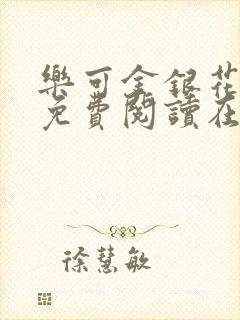 樂可金銀花
免費閱讀在
徐慧敏